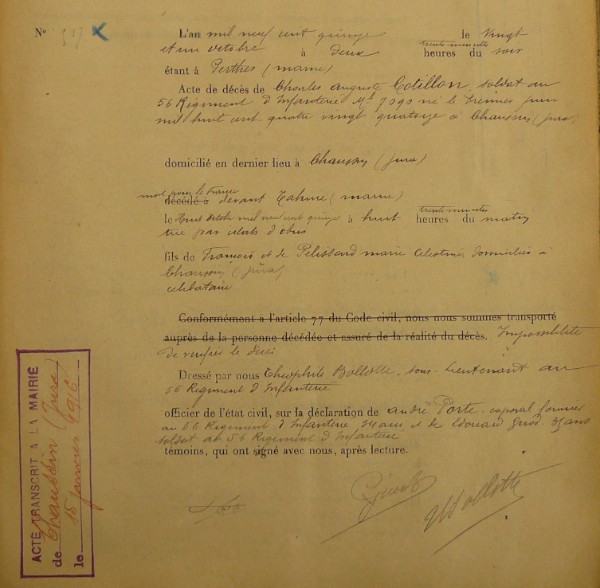 Nº
L'an mil neuf cent quinze le vingt
et un octobre à deux heures trente minutes du soir
étant à Perthes (marne)
Acte de décès de Charles Auguste Cotillon, soldat au
56 Régiment d'Infanterie Mle 7090 né le treize juin
mil huit cent quatre vingt quatorze à Chaussin (jura)
domicilié en dernier lieu à Chaussin (jura)
mort pour la France
décédé à devant Tahure (marne)
le huit octobre mil neuf cent quinze à huit heures trente minutes du matin
tué par éclats d'obus
fils de François et de Pelissard marie domiciliés à
Chaussin (jura)
célibataire
Conformément à l'article 77 du Code civil, nous nous sommes transporté
auprès de la personne décédée et assuré de la réalité du décès. Impossibilité
de le décès
Dressé par nous Théophile Bollotte sous-Lieutenant au
56 Régiment d'Infanterie
officier de l'état civil, sur la déclaration de andré Porte caporal
au 56 Régiment d'Infanterie 34 ans et de Edouard ans
soldat au 56 Régiment d'Infanterie
témoins, qui ont signé avec nous, après lecture.
Bollotte
ACTE TRANSCRIT A LA MAIRIE
de Chaussin (Jura)
le 15 janvier 1916